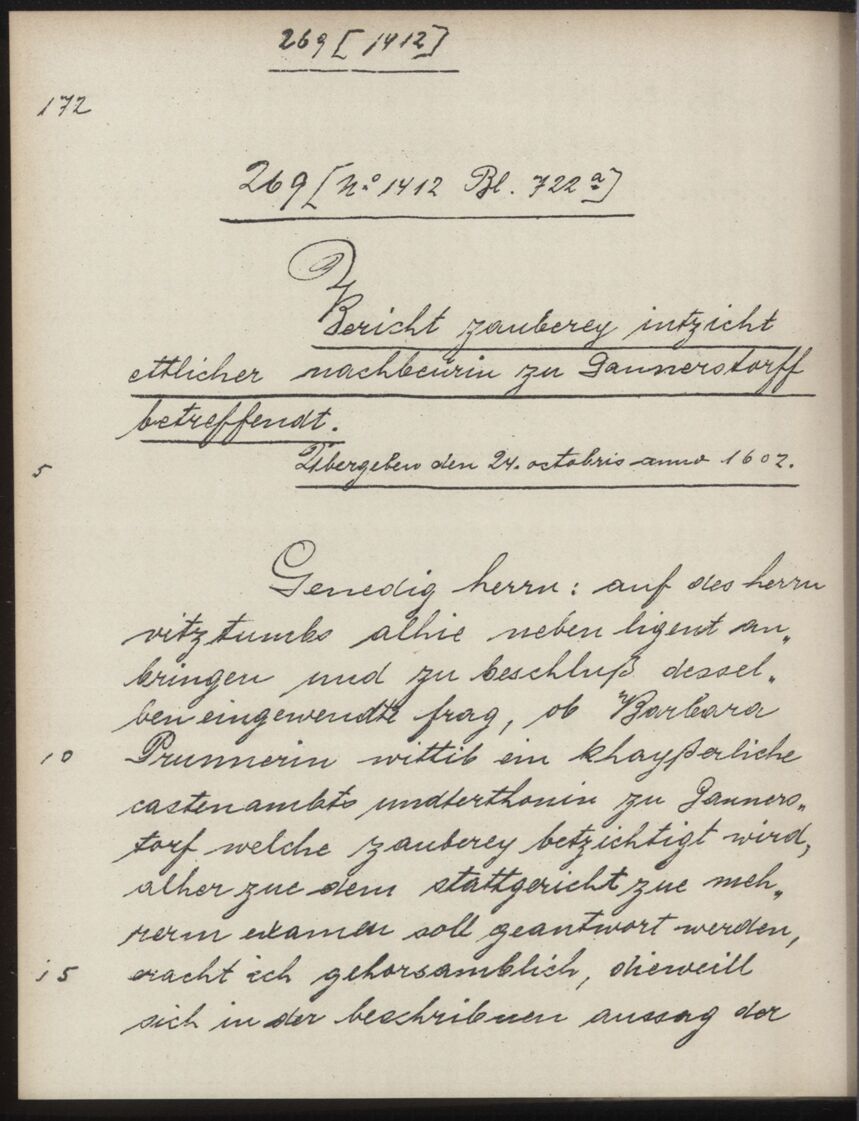 269 [1412]
172
269 [No 1412 Bl. 722 a]
Bericht zauberey intzicht
ettlicher nachbeürin zu Gannerstorff
betreffendt.
5 Übergeben den 24. octobris anno 1602.
Genedig herrn: auf des herrn
vitztumbs alhie neben ligent an„
bringen und zu beschluß dessel„
ben eingewendte frag, ob Barbara
10 Prunnerin wittib ein khayßerliche
castenambts undterthonin zu Ganners„
torf welche zauberey betzichtigt wird,
alher zue dem stattgericht zue meh„
rerm examen soll geantwort werden,
15 eracht ich gehorsamblich, dieweill
sich in der beschribnen aussag der